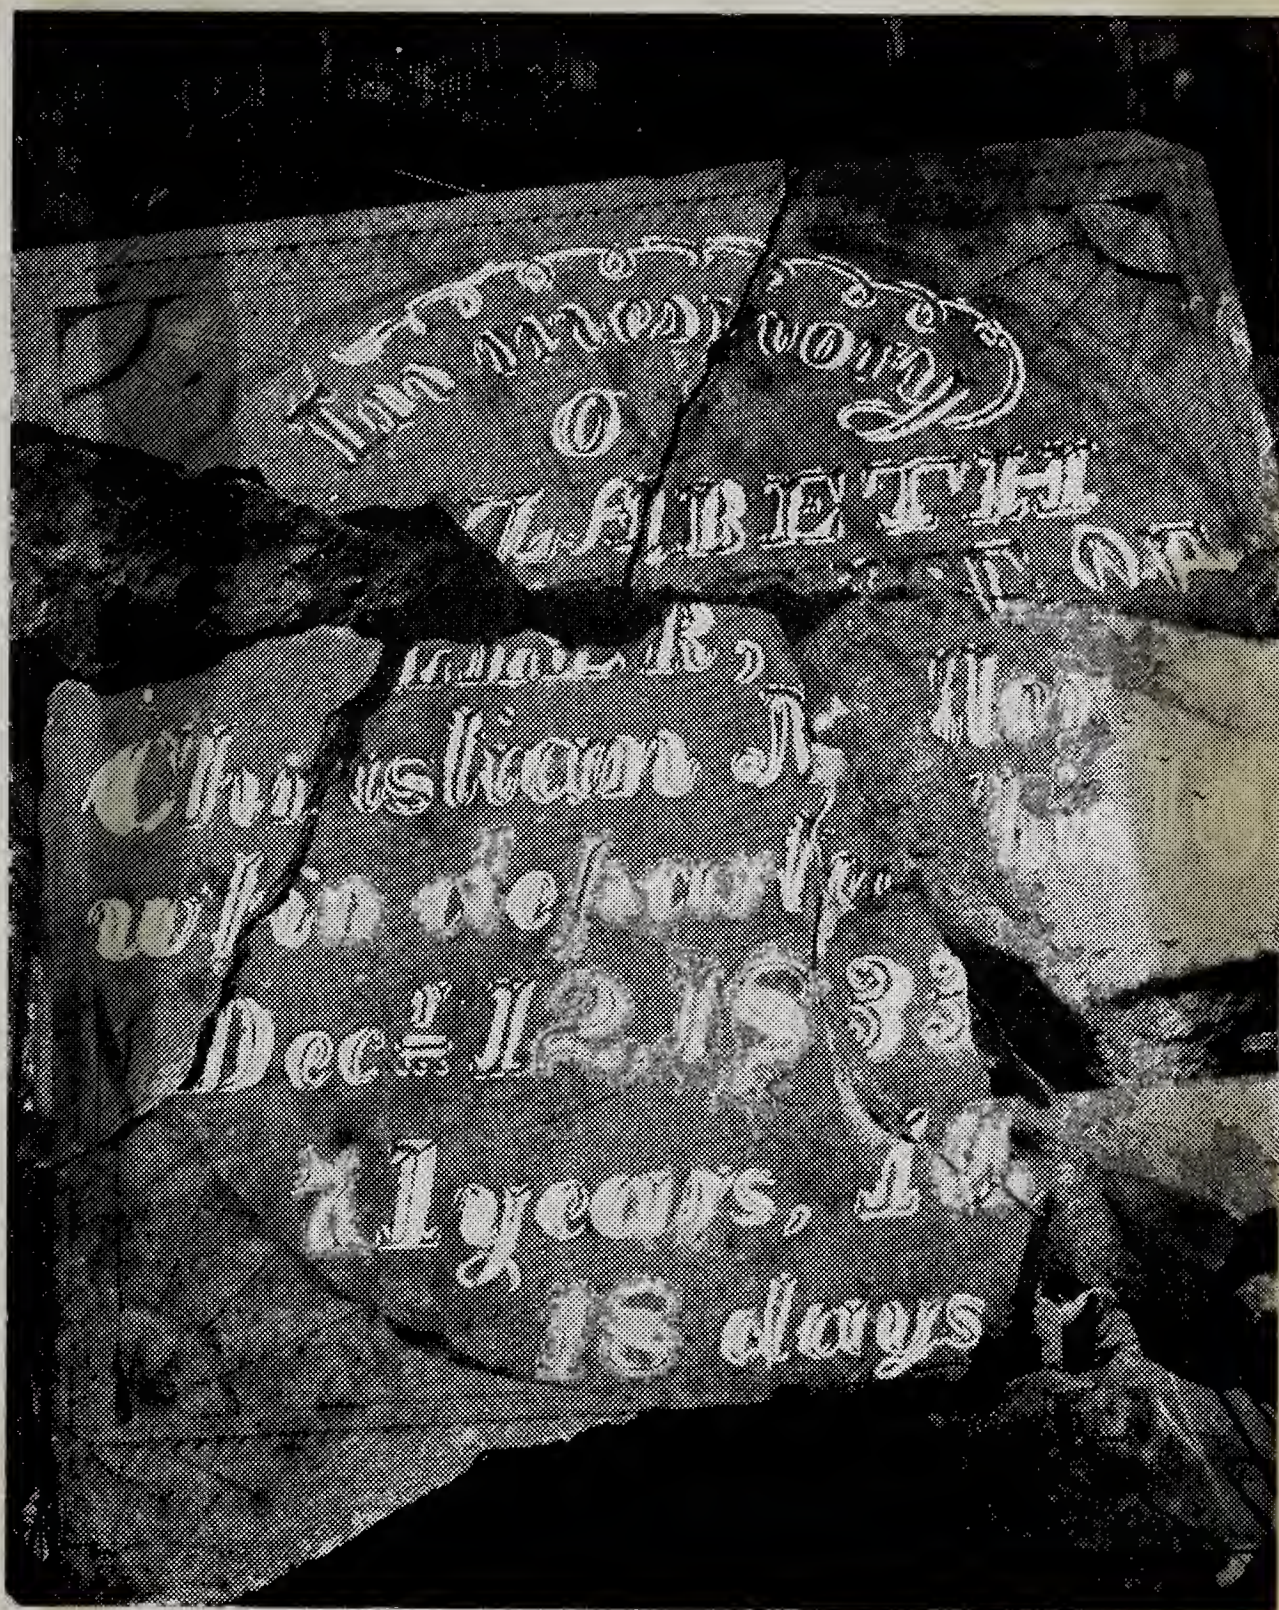 In memory
O
ZABETH
T OF
R,
Christian
who depart
Decr 12. 1833
1 years, 10
16 days